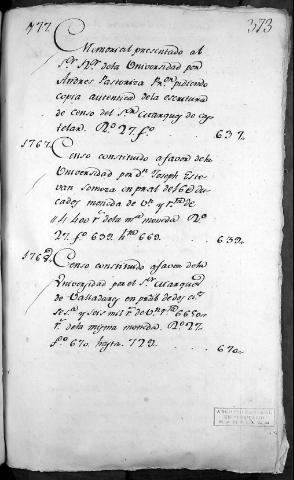 373
777. Memorial presentado al
Sr. Ror. de la Universidad por
Andres Pastoriza Pror. pidiendo
copia autentica de la escritura
de censo del Sor. Marquez de
telar. No. 27. fo. 637.
1767. Censo constituido a favor de la
Universidad por Dn. Joseph Este-
van Somoza en pral. de 160 du-
cados moneda de Vn. y rtos. de
rs. de la ma. moneda. No.
27. fo. 639. hta. 669. 639.
1768. Censo constituido a favor de la
Universidad por el Sr. Marques
de Valladares en pral. de
y seis mil rs. de Vn.
rs. de la misma moneda. No. 27.
fo. 670. hasta. 729. 670.